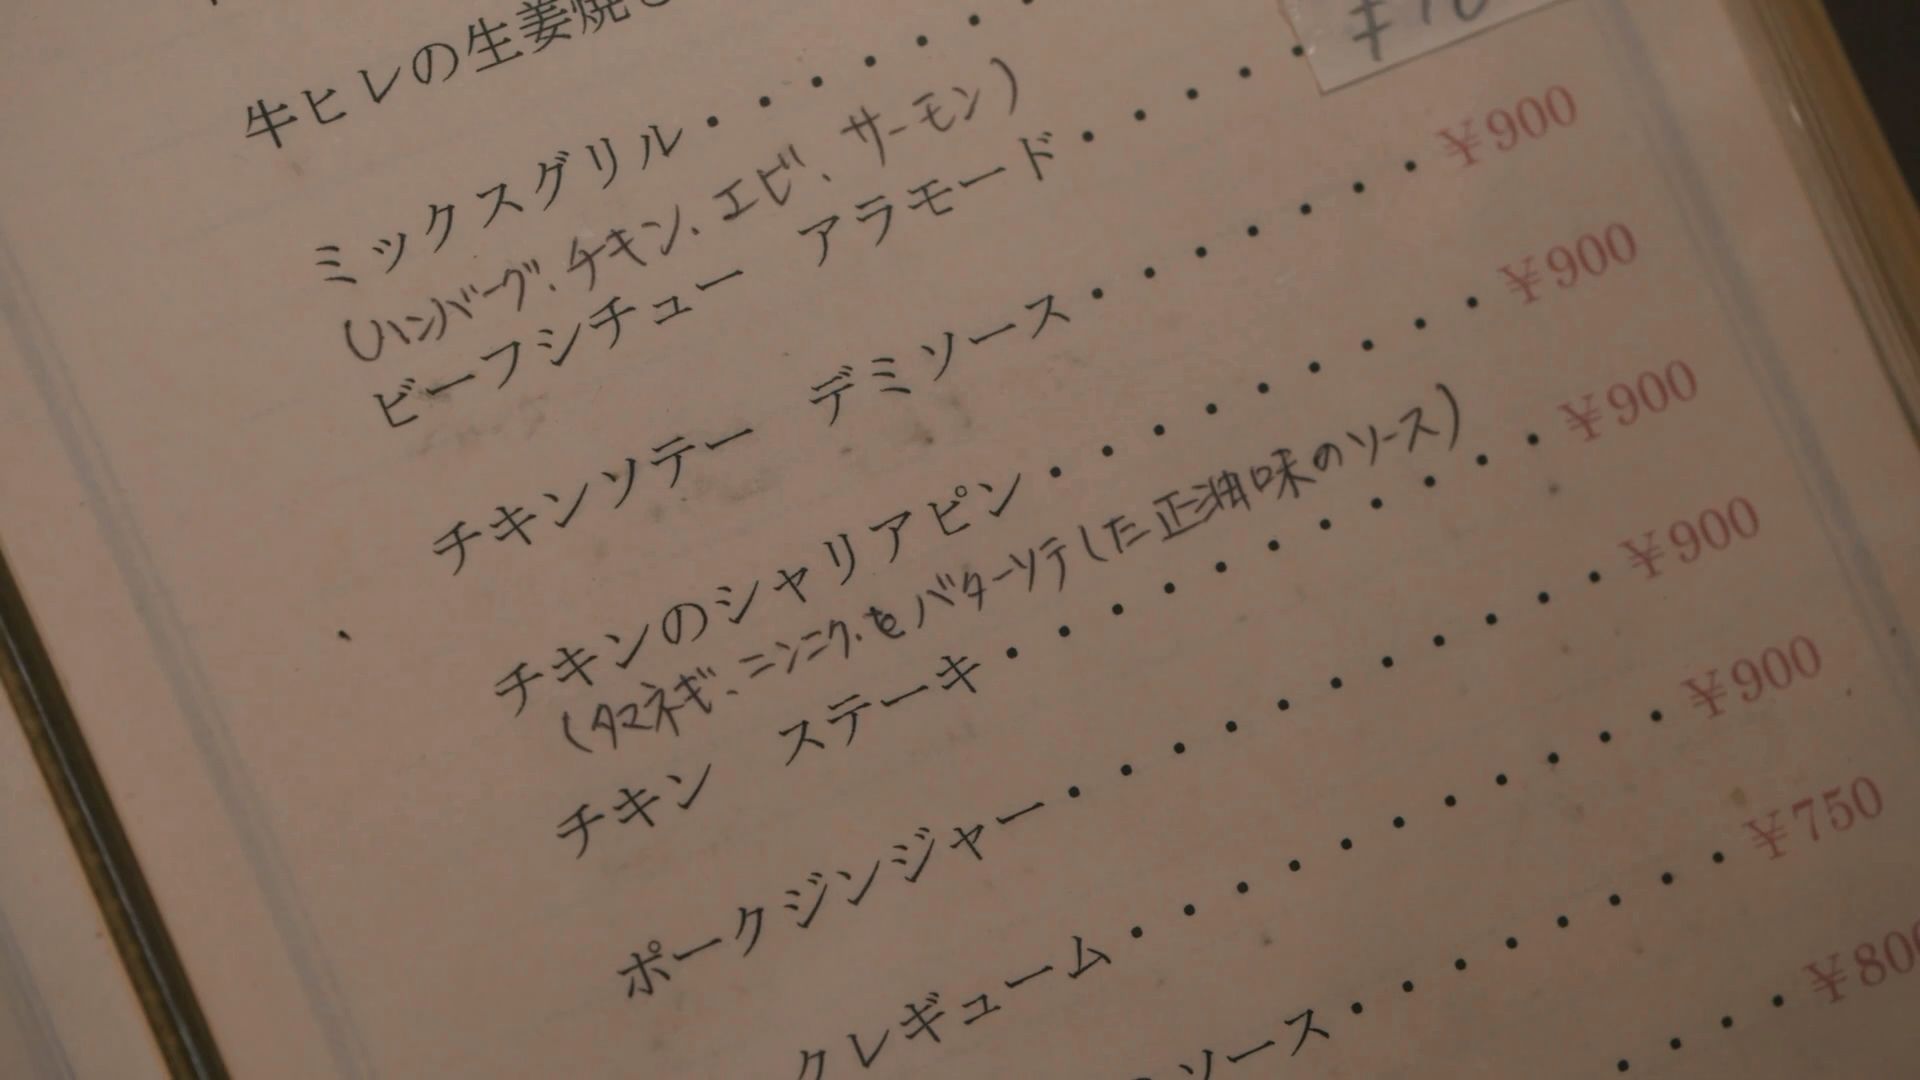 牛ヒレの生姜焼
ミックスグリル・・・・・・・
(ハンバーグ、チキン、エビ、サーモン)
ビーフシチュー アラモード・・・・・
チキンソテー デミソース・・・・・・・ ¥900
チキンのシャリアピン・・・・・・・・・ ¥900
(タマネギ、ニンニク、をバターソテした正油味のソース)
チキン ステーキ・・・・・・・・・・・ ¥900
ポークジンジャー・・・・・・・・・・・ ¥900
クレギューム・・・・・・・・・・・ ¥900
ソース・・・・・・・・ ¥750
・・・・ ¥800